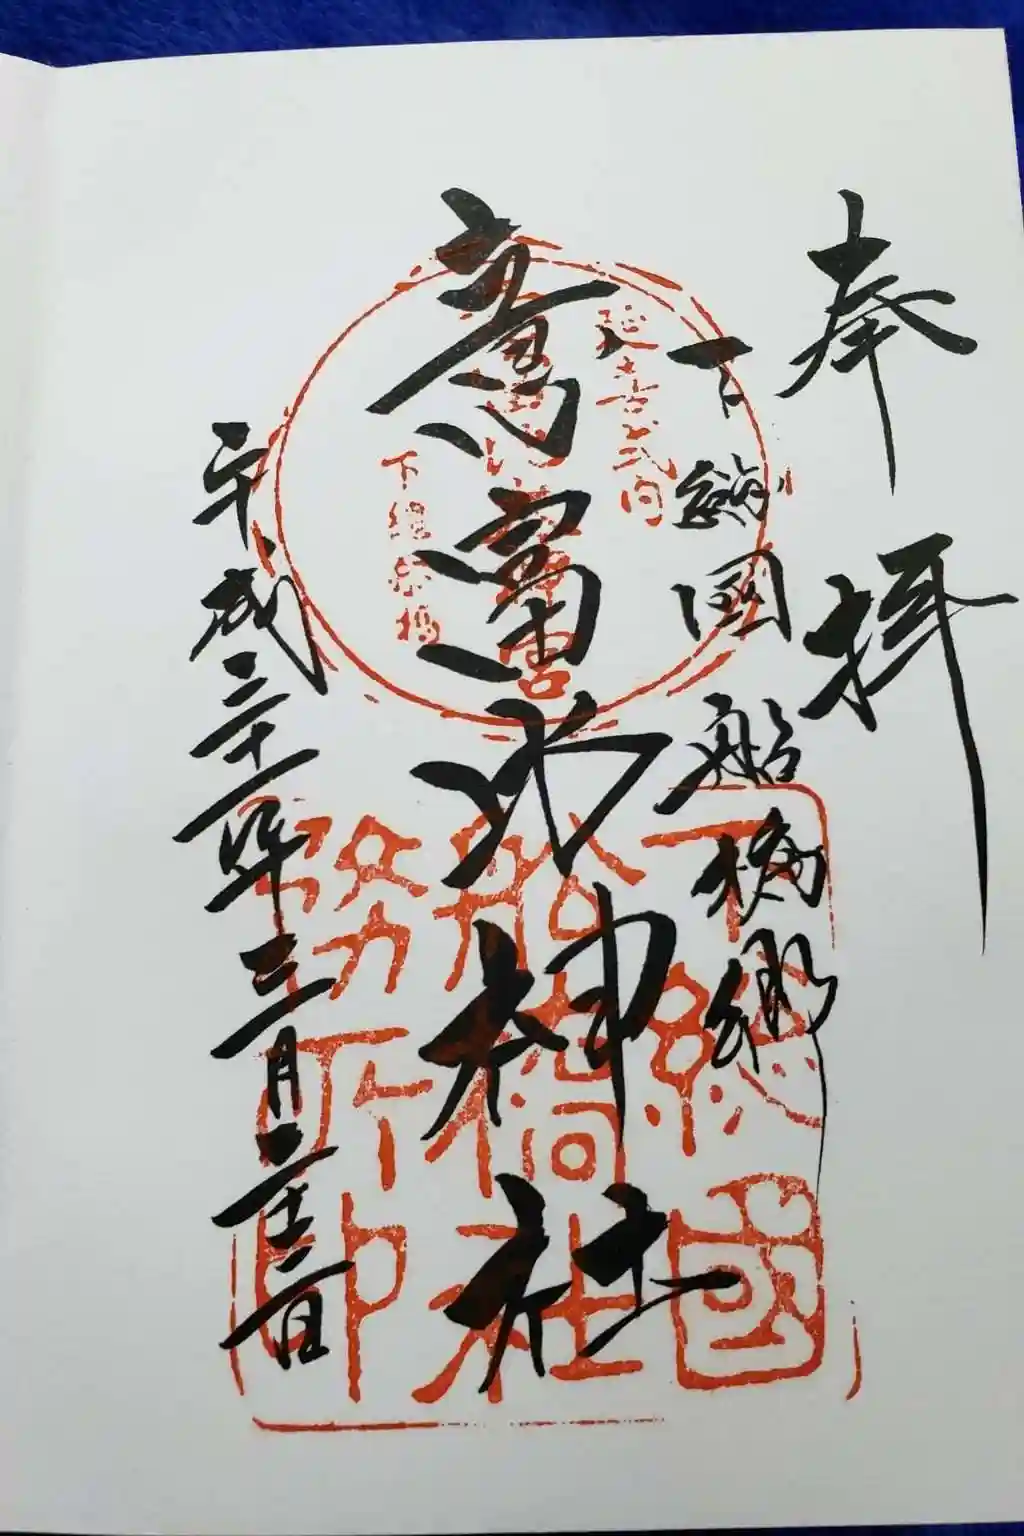 奉拝
下総國船橋郷
意富比神社
平成三十一年三月二十二日
延喜式内
下総船橋
下總國
船橋社
務所印